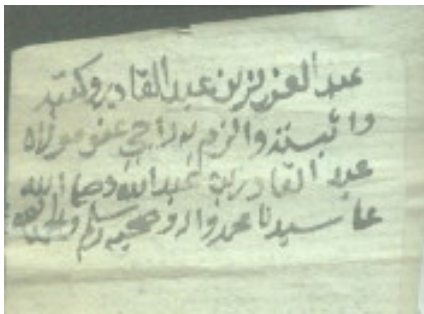 عبد العزيز بن عبد القادر وكتبه
واثبته والزم به راجي عفو مولاه
عبد القادر بن عبد الله وصلى الله
على سيدنا محمد واله وصحبه وسلم